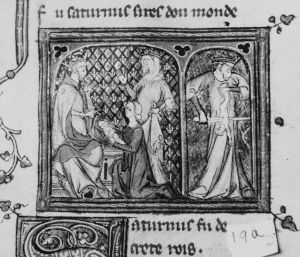 fu saturnus sires dou monde
Saturnus fu de
crete rois.
19a